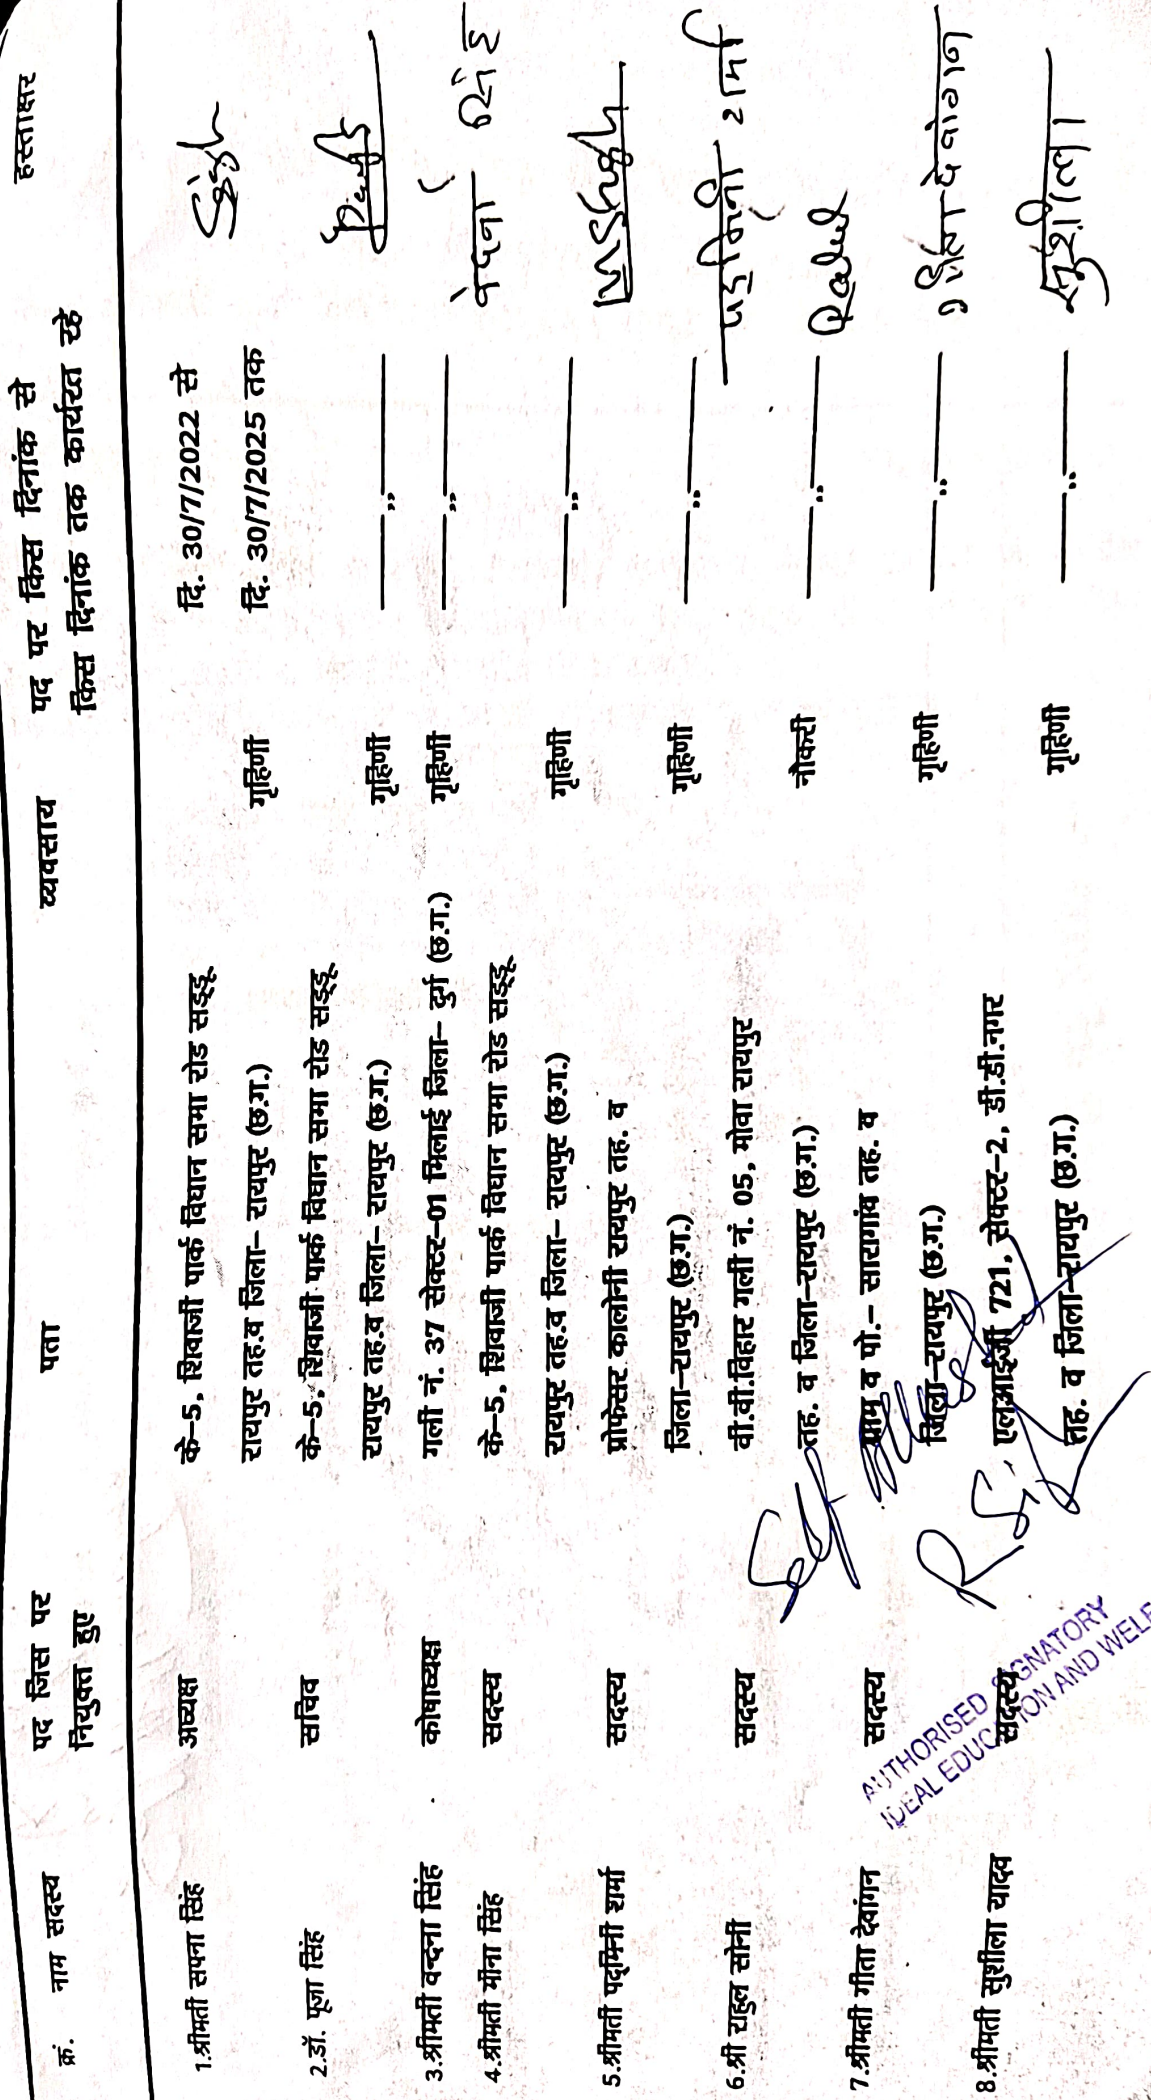 क्रं. नाम सदस्य पद जिस पर पता व्यवसाय पद पर किस दिनांक से हस्ताक्षर
नियुक्त हुए किस दिनांक तक कार्यरत रहे
1.श्रीमती सपना सिंह अध्यक्ष के–5, शिवाजी पार्क विधान सभा रोड सड्डू दि. 30/7/2022 से Singh
रायपुर तह.व जिला– रायपुर (छ.ग.) गृहिणी दि. 30/7/2025 तक
2.डॉ. पूजा सिंह सचिव के–5, शिवाजी पार्क विधान सभा रोड सड्डू
रायपुर तह.व जिला– रायपुर (छ.ग.) गृहिणी ——,,——
3.श्रीमती वन्दना सिंह कोषाध्यक्ष गली नं. 37 सेक्टर–01 भिलाई जिला– दुर्ग (छ.ग.) गृहिणी ——,,—— सिंह
4.श्रीमती मीना सिंह सदस्य के–5, शिवाजी पार्क विधान सभा रोड सड्डू
रायपुर तह.व जिला– रायपुर (छ.ग.) गृहिणी ——,,—— MSingh
5.श्रीमती पद्मिनी शर्मा सदस्य प्रोफेसर कालोनी रायपुर तह. व
जिला–रायपुर (छ.ग.) गृहिणी ——,,—— पद्मिनी शर्मा
6.श्री राहुल सोनी सदस्य वी.वी.विहार गली नं. 05, मोवा रायपुर
तह. व जिला–रायपुर (छ.ग.) नौकरी ——,,—— Rahul
7.श्रीमती गीता देवांगन सदस्य ग्राम व पो.– सारागांव तह. व
जिला–रायपुर (छ.ग.) गृहिणी ——,,—— गीता देवांगन
8.श्रीमती सुशीला यादव सदस्य एलआईजी 721, सेक्टर–2, डी.डी.नगर
तह. व जिला–रायपुर (छ.ग.) गृहिणी ——,,—— सुशीला
Self
AUTHORISED SIGNATORY
IDEAL EDUCATION AND WELF